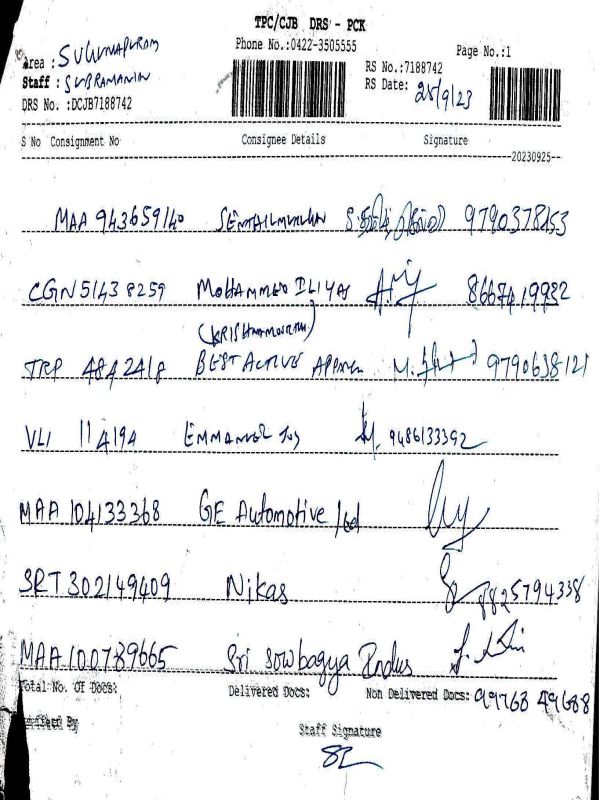 TPC/CJB DRS - PCK
Phone No.:0422-3505555
Page No.:1
Area : SUGUNAPURAM
RS No.:7188742
Staff : SUBRAMANIAN
RS Date: 25/9/23
DRS No. :DCJB7188742
S No Consignment No Consignee Details Signature
20230925
MAA 943659140 SENTHILMURUGAN 9790378153
CGN 51438259 MOHAMMED ILIYAS 8667419932
(KRISHNAMOORTHI)
TRP 4842418 BEST ACTIVE M. 9790638121
VLI 114194 EMMANUEL 9486133392
MAA 104133368 GE Automotive Ltd
SRT 302149409 Nikas 8825794338
MAA 100789665 Sri Sowbagya Indus
Total No. Of Docs: Delivered Docs: Non Delivered Docs: 99768 49688
Verified By
Staff Signature